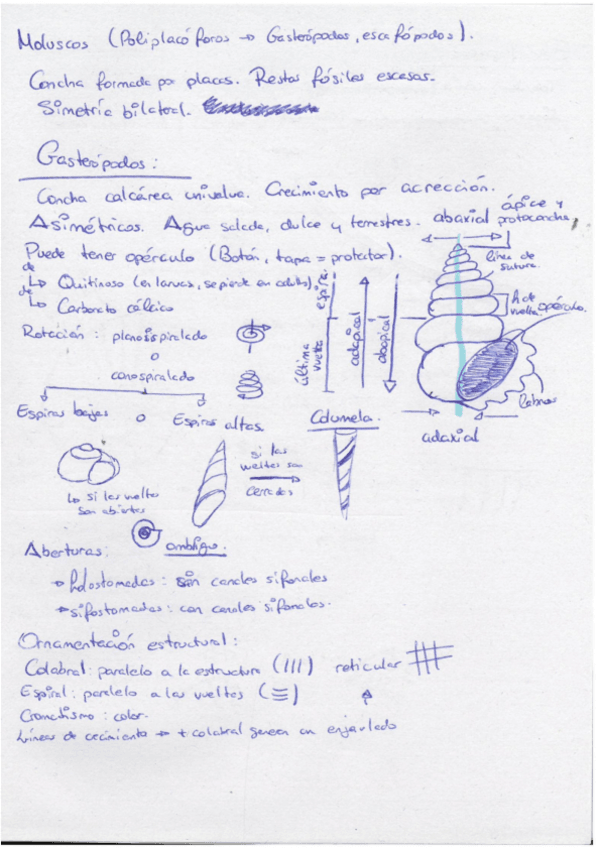 Moluscos (Poliplacóforos → Gasterópodos, escafópodos).
Concha formada por placas. Restos fósiles escasos.
Simetría bilateral.
Gasterópodos:
Concha calcárea univalva. Crecimiento por acrección.
Asimétricos. Agua salada, dulce y terrestres.
Puede tener opérculo (Botón, tapa = protector).
de ↳ Quitinoso (en larvas, se pierde en adultos)
de ↳ Carbonato cálcico
Rotación: planoispiralado
o
conoispiralado
Espiras bajas o Espiras altas.
abaxial
ápice y
protoconcha
línea de
sutura.
h de
vuelta
opérculo.
labros
adaxial
espira
última
vuelta
adapical
abapical
Columela.
↳ si las vueltas
son abiertas
si las
vueltas son
cerradas
ombligo.
Aberturas:
→ holostomadas: sin canales sifonales
→ sifostomadas: con canales sifonales.
Ornamentación estructural:
Colabral: paralelo a la estructura (///) reticular
Espiral: paralelo a las vueltas (≡)
Cromatismo: color.
Líneas de crecimiento → + colabral generan un enjaulado